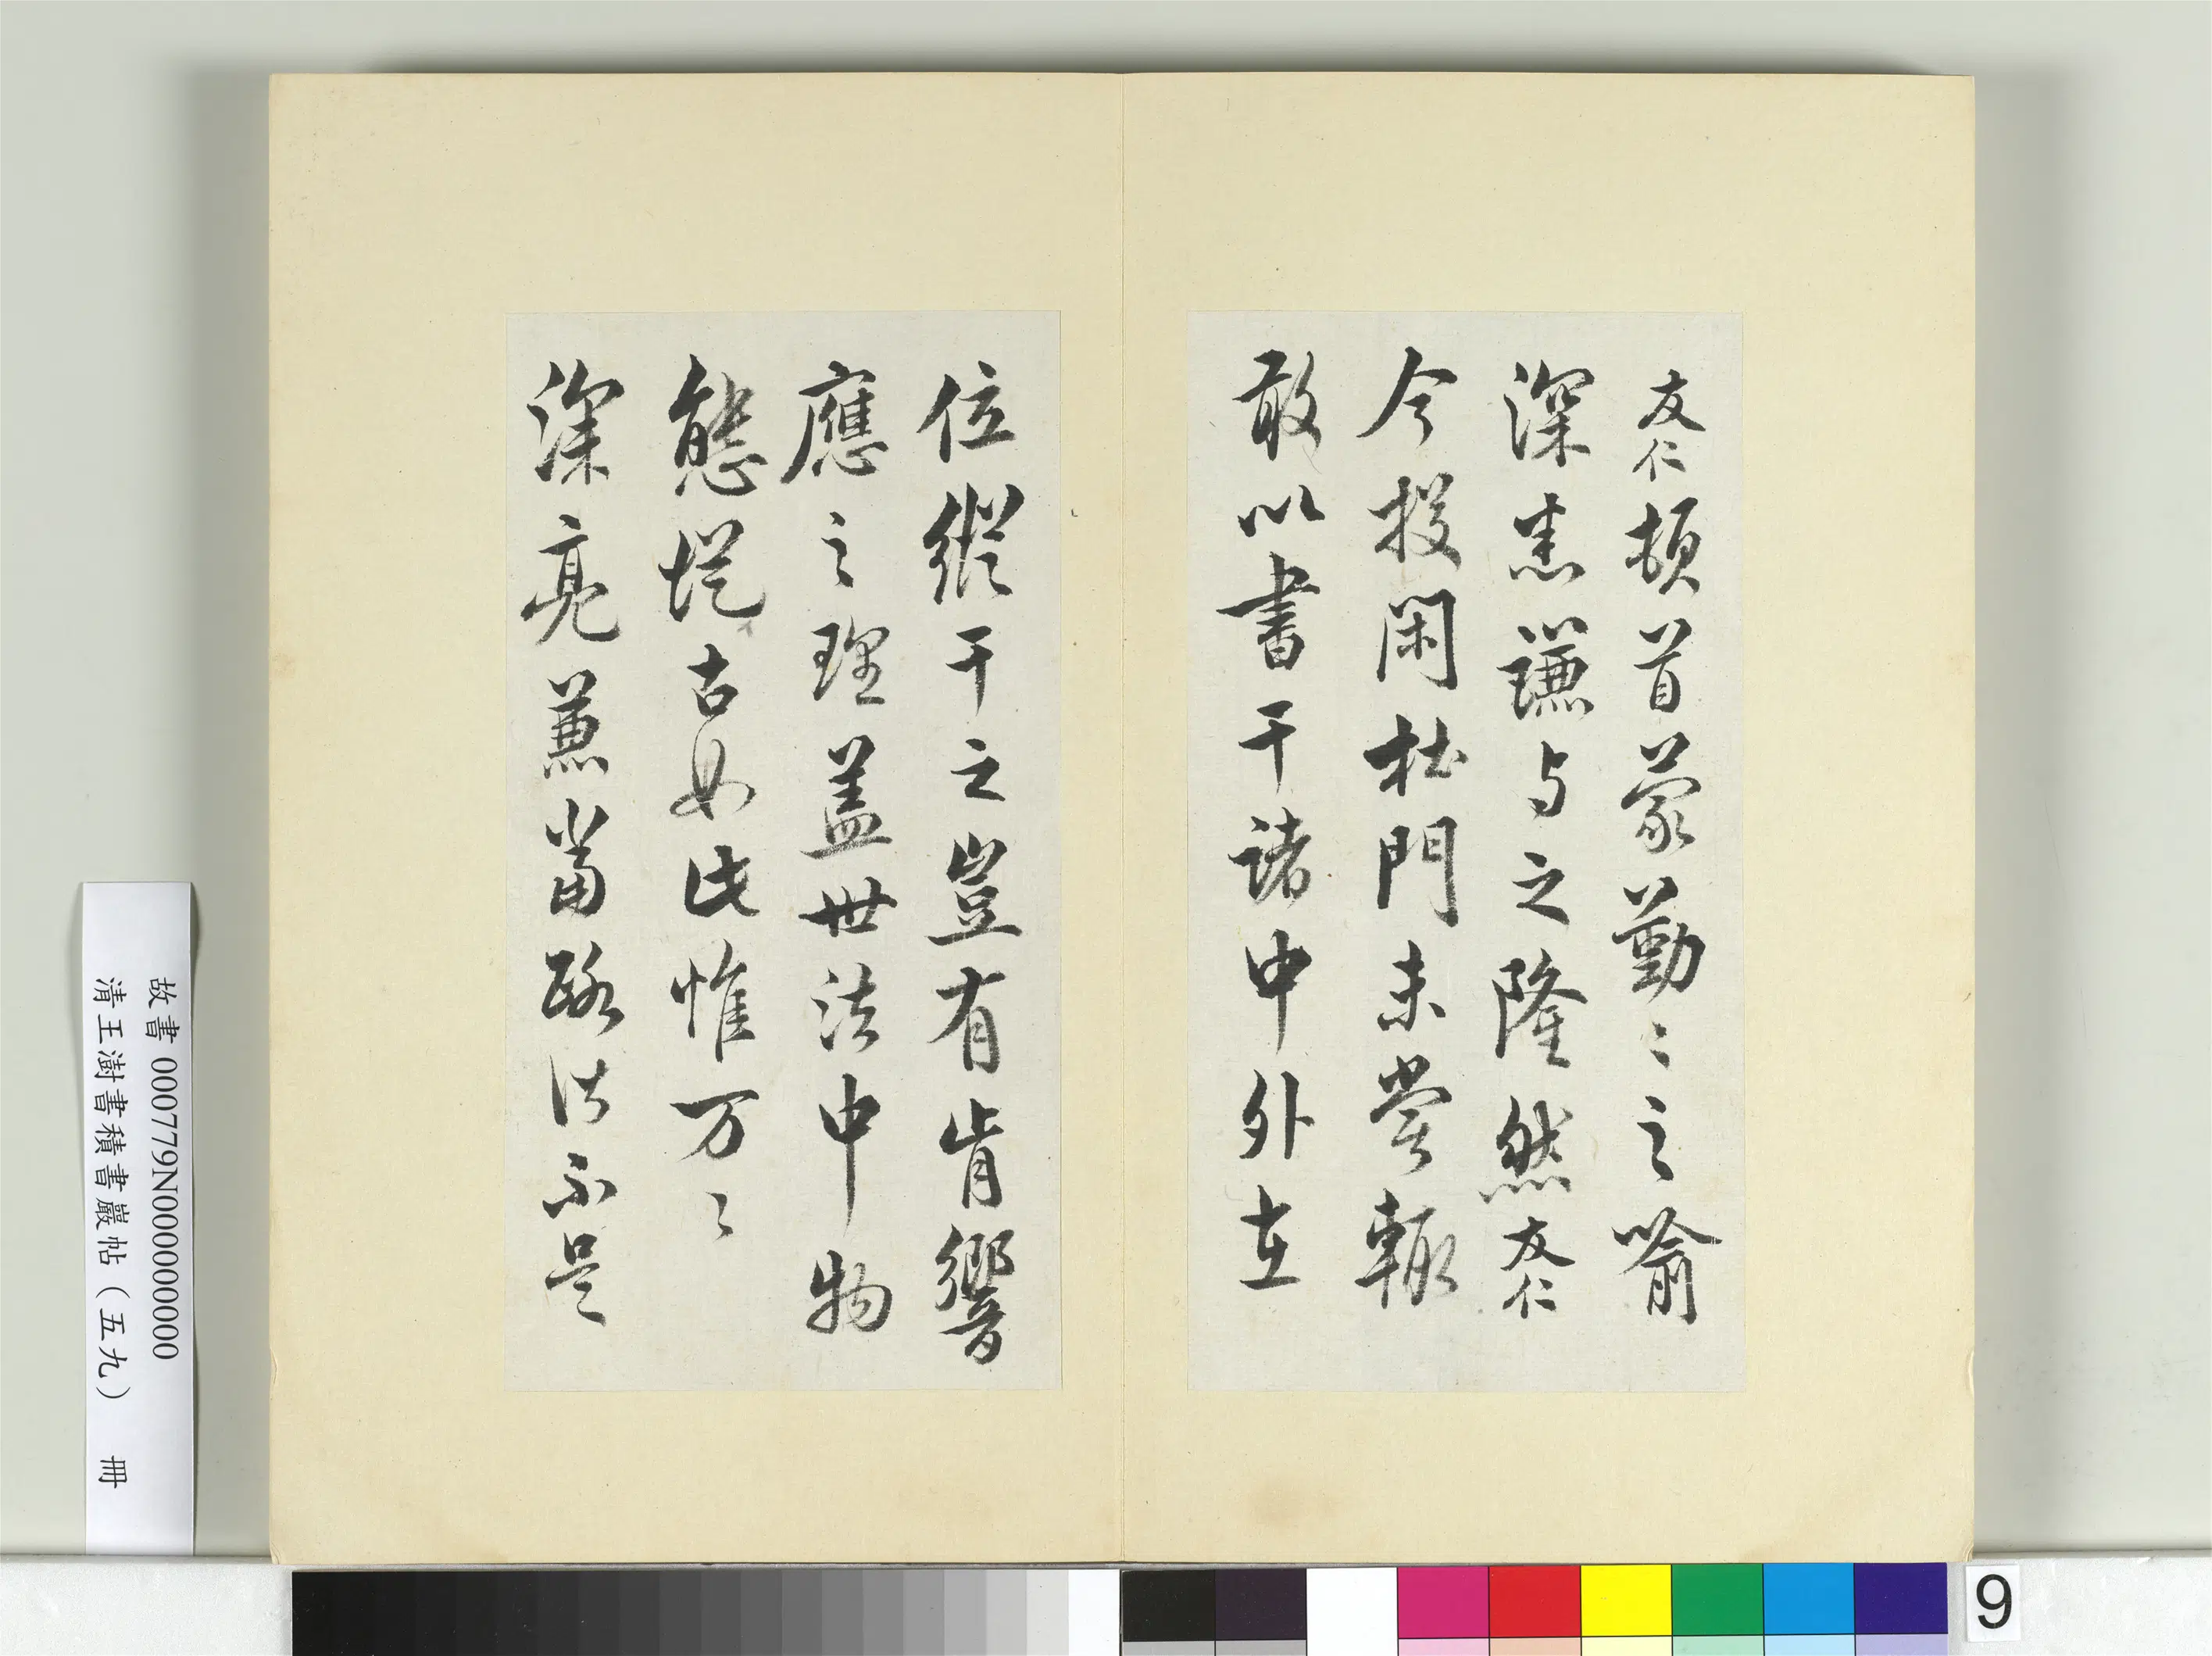 友仁頓首蒙勤〻之喻
深悉謙与之隆然友仁
今投閑杜門未嘗輙
敢以書干諸中外在
位縱干之豈有肯響
應之理蓋世法中物
態從古如此惟万〻
深亮兼當路不是
故書 000779N000000000
清王澍書積書巖帖（五九） 冊
9